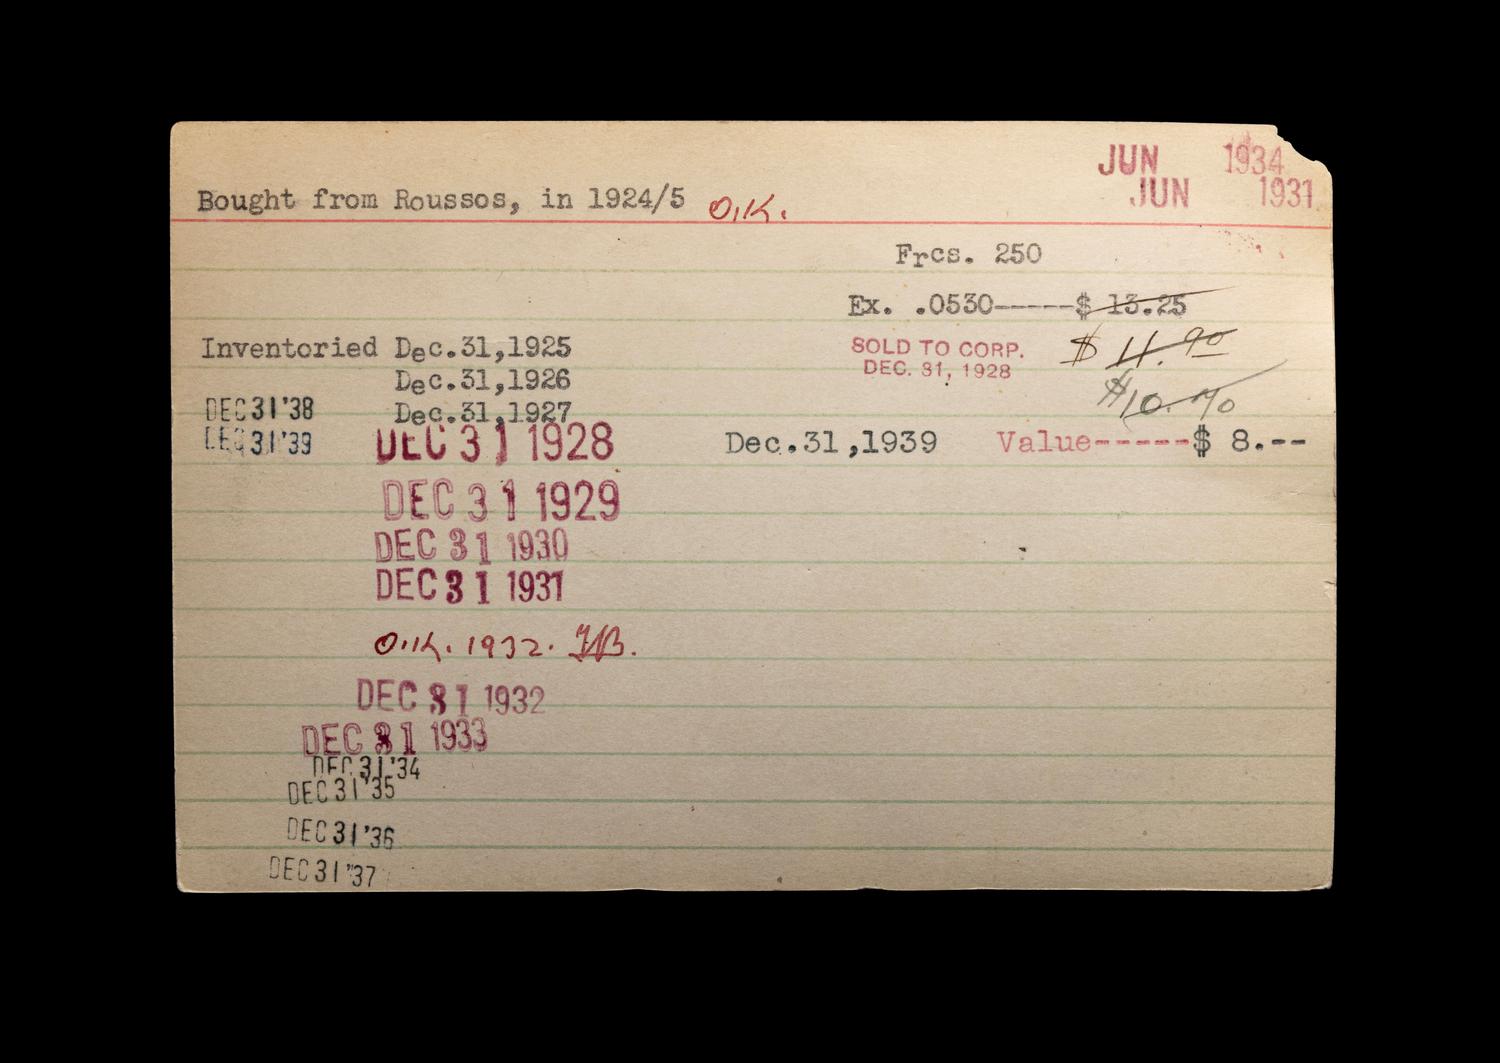 JUN 1934
JUN 1931
Bought from Roussos, in 1924/5 O.K.
Frcs. 250
Ex. .0530-----$ 13.25
Inventoried Dec.31,1925
SOLD TO CORP.
DEC. 31, 1928
$ 11.90
Dec.31,1926
$10.70
DEC 31 '38 Dec.31,1927
DEC 31 '39 DEC 31 1928 Dec.31,1939 Value-----$ 8.--
DEC 31 1929
DEC 31 1930
DEC 31 1931
O.K. 1932.
DEC 31 1932
DEC 31 1933
DEC 31 '34
DEC 31 '35
DEC 31 '36
DEC 31 '37